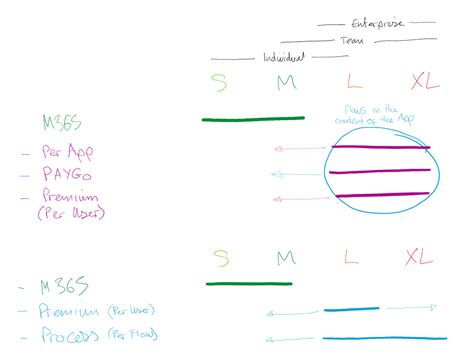 Enterprise
Team
Individual
S M L XL
Flows in the
context of the App
M365
- Per App
- PAYGO
- Premium
(Per User)
S M L XL
- M365
- Premium (Per User)
- Process (Per Flow)